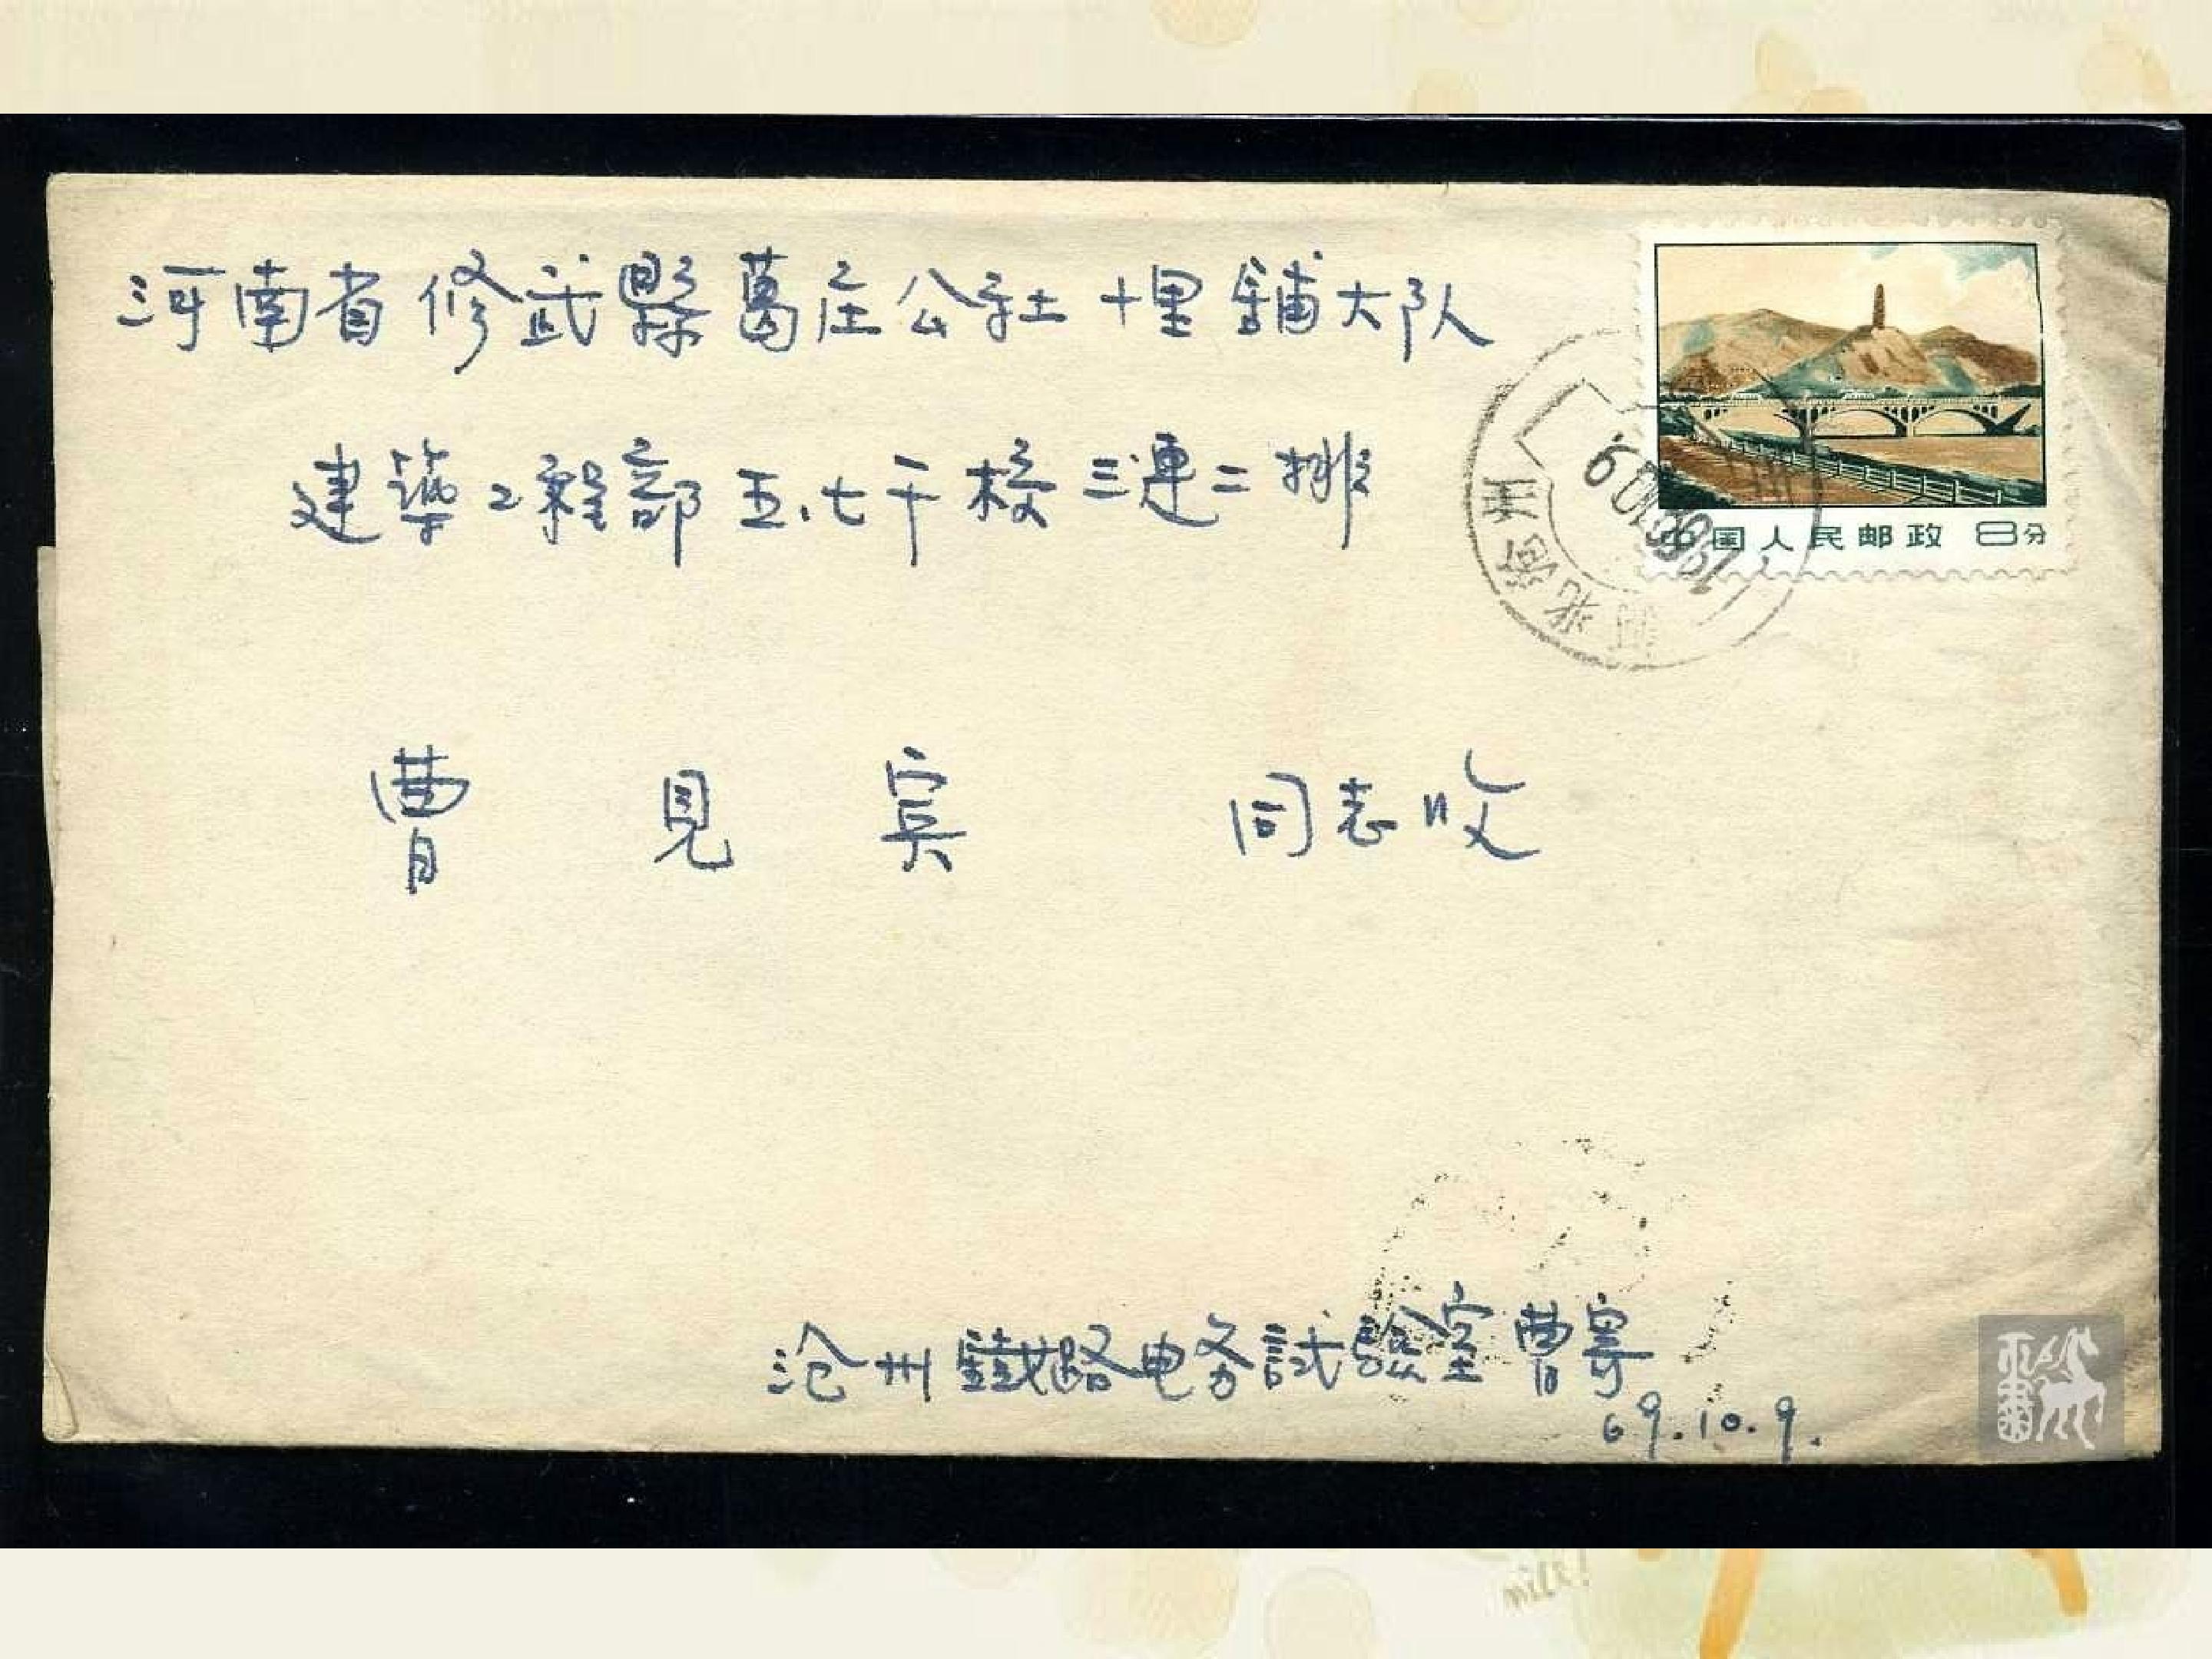 河南省修武縣葛庄公社十里鋪大队
中国人民邮政 8分
河北沧州
1969.10.9
建築工程部五.七干校三連二排
曹見宾 同志收
沧州鐵路电务試驗室曹寄
69.10.9.
milk!